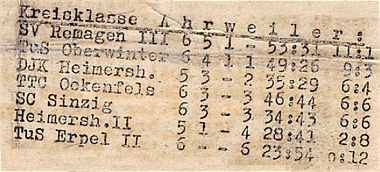 Kreisklasse Ahrweiler:
SV Remagen III 6 5 1 - 53:31 11:1
TuS Oberwinter 6 4 1 1 49:26 9:3
DJK Heimersh. 5 3 - 2 35:29 6:4
TTC Ockenfels 6 3 - 3 46:44 6:6
SC Sinzig 6 3 - 3 34:43 6:6
Heimersh.II 5 1 - 4 28:41 2:8
TuS Erpel II 6 - - 6 23:54 0:12